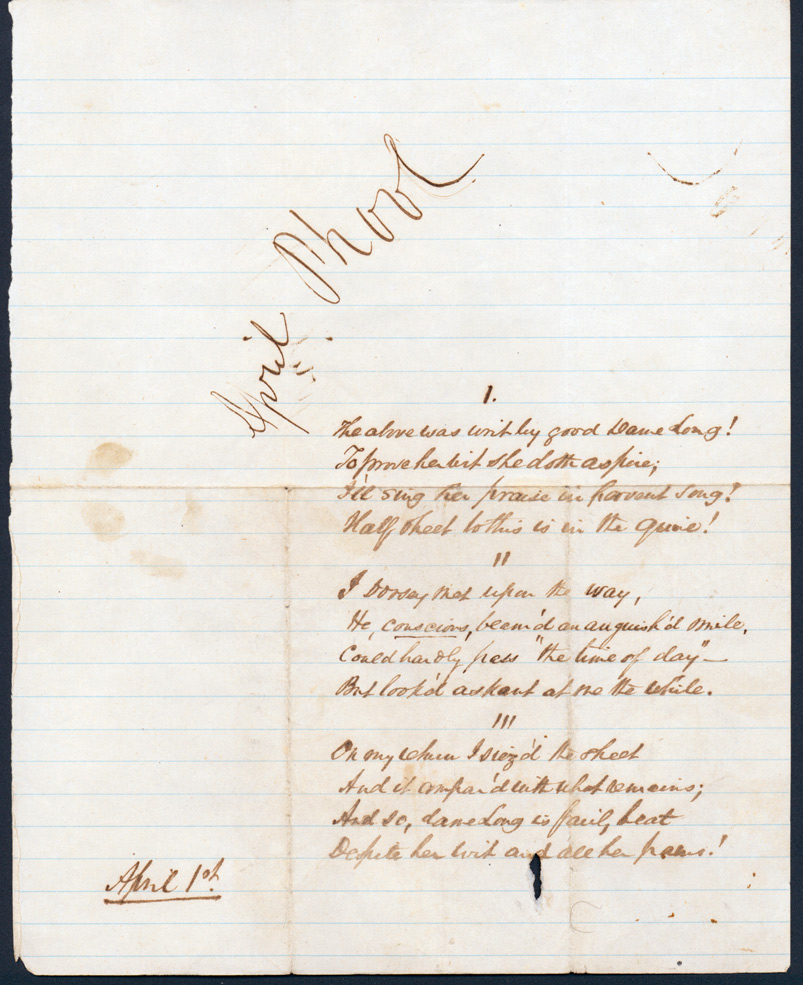 April Phool
1.
The above was writ by good Dame Long!
To prove her wit she doth aspire;
I'll sing her praise in farvent song!
Half sheet to this is in the quire!
11
I Dorsey met upon the way,
He, conscious, beem'd an anguish'd smile,
Could hardly pass "the time of day"—
But look'd askant at me the while.
111
On my return I siez'd the sheet
And it compar'd with what remains;
And so, dame Long is fairly beat
Despite her wit and all her pains!
April 1st.